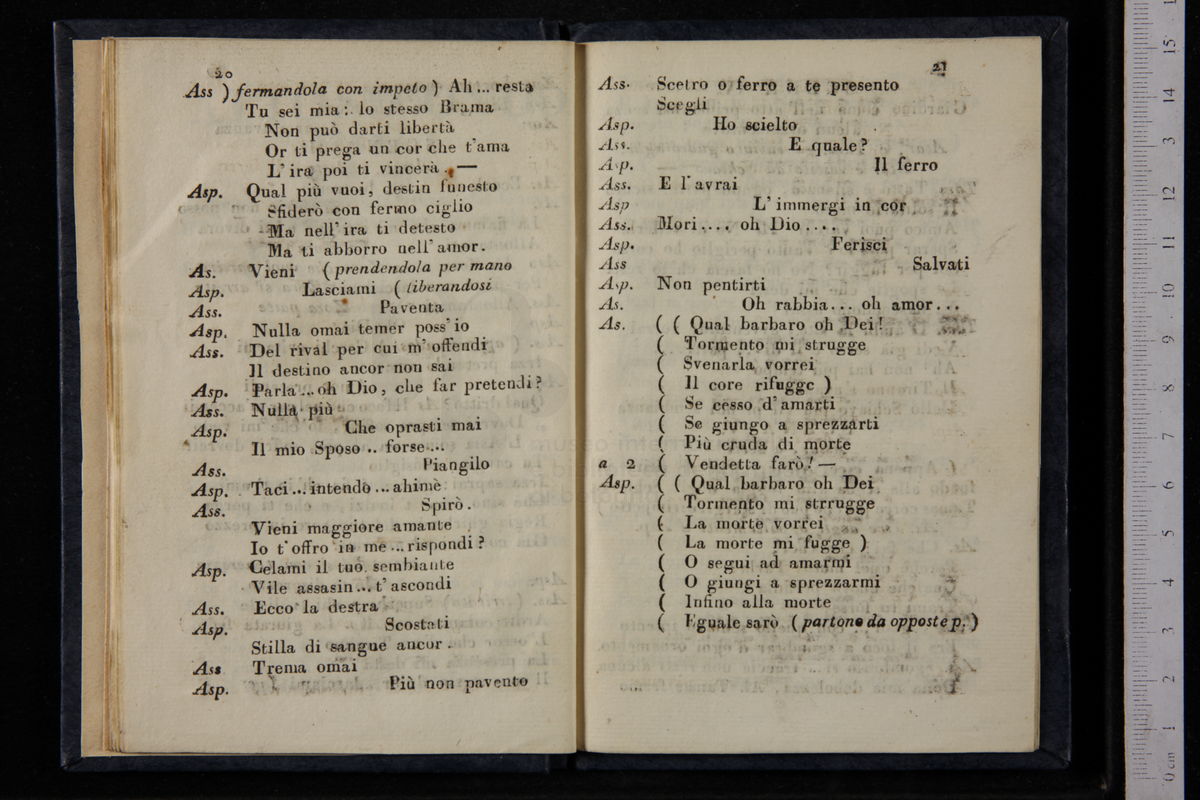 20
Ass ) fermandola con impeto ) Ah ... resta
Tu sei mia : lo stesso Brama
Non può darti libertà
Or ti prega un cor che t'ama
L' ira poi ti vincerà . —
Asp. Qual più vuoi, destin funesto
Sfiderò con fermo ciglio
Ma nell' ira ti detesto
Ma ti abborro nell' amor.
As. Vieni ( prendendola per mano
Asp. Lasciami ( liberandosi
Ass. Paventa
Asp. Nulla omai temer poss' io
Ass. Del rival per cui m' offendi
Il destino ancor non sai
Asp. Parla ... oh Dio, che far pretendi?
Ass. Nulla più
Asp. Che oprasti mai
Il mio Sposo .. forse ...
Ass. Piangilo
Asp. Taci ... intendo ... ahimè
Ass. Spirò.
Vieni maggiore amante
Io t'offro in me ... rispondi?
Asp. Celami il tuo sembiante
Vile assasin ... t' ascondi
Ass. Ecco la destra
Asp. Scostati
Stilla di sangue ancor.
Ass Trema omai
Asp. Più non pavento
21
Ass. Scetro o ferro a te presento
Scegli
Asp. Ho scielto
Ass. E quale?
Asp. Il ferro
Ass. E l'avrai
Asp L' immergi in cor
Ass. Mori .... oh Dio ....
Asp. Ferisci
Ass Salvati
Asp. Non pentirti
As. Oh rabbia ... oh amor ...
As. ( ( Qual barbaro oh Dei!
( Tormento mi strugge
( Svenarla vorrei
( Il core rifugge )
( Se cesso d' amarti
( Se giungo a sprezzarti
( Più cruda di morte
a 2 ( Vendetta farò! —
Asp. ( ( Qual barbaro oh Dei
( Tormento mi strrugge
( La morte vorrei
( La morte mi fugge )
( O segui ad amarmi
( O giungi a sprezzarmi
( Infino alla morte
( Eguale sarò ( partono da opposte p. )